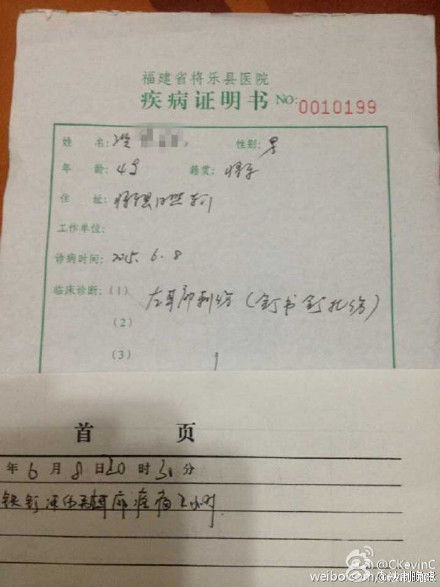 福建省将乐县医院
疾病证明书 NO:0010199
姓 名: 性别: 男
年 龄: 4岁 籍贯: 将乐
住 址: 将乐县
工作单位:
诊病时间: 2015. 6. 8
临床诊断: (1) 左耳部刺伤 (订书钉扎伤)
(2)
(3)
首 页
年 6 月 8 日 20 时 30 分
@CKevinC
weibo.com/
法制晚报